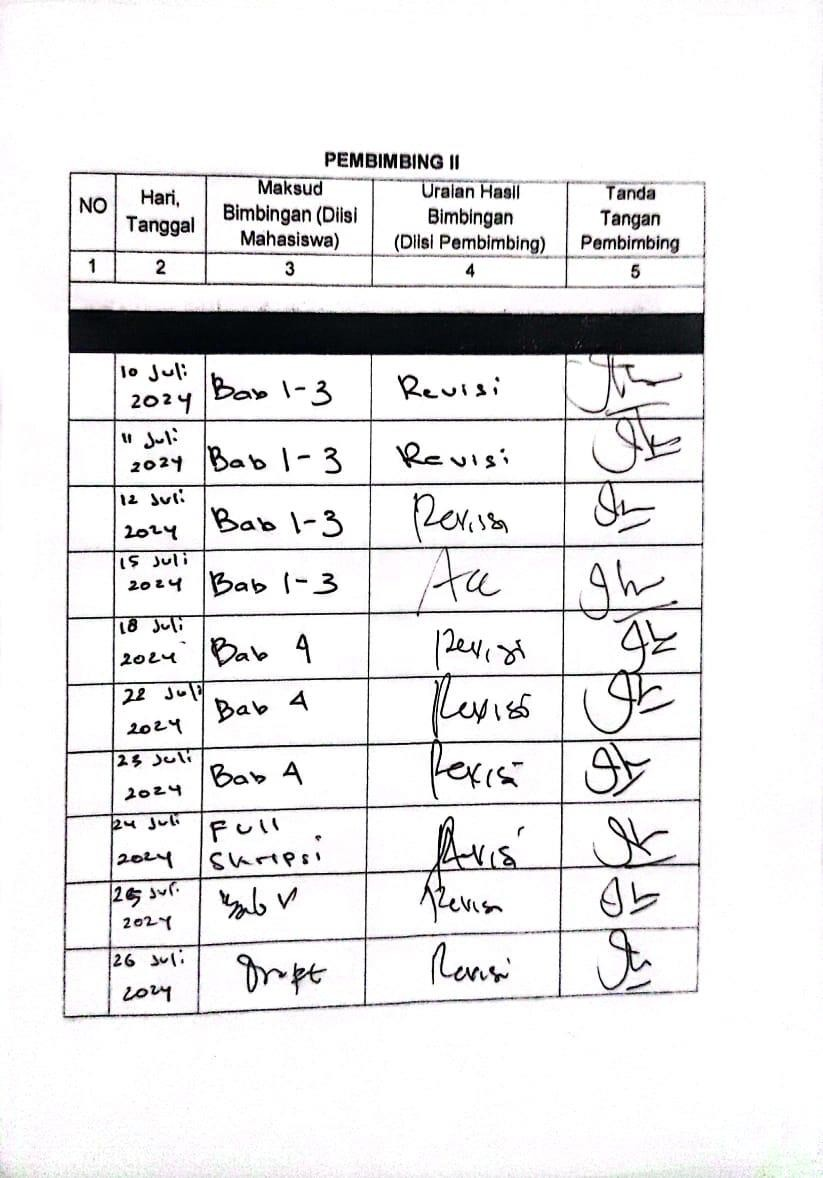 PEMBIMBING II
NO
Hari,
Tanggal
Maksud
Bimbingan (Diisi
Mahasiswa)
Uraian Hasil
Bimbingan
(Diisi Pembimbing)
Tanda
Tangan
Pembimbing
1 2 3 4 5
10 Juli
2024 Bab 1-3 Revisi
11 Juli
2024 Bab 1-3 Revisi
12 Juli
2024 Bab 1-3 Revisi
15 Juli
2024 Bab 1-3 Acc
18 Juli
2024 Bab 4 Revisi
22 Juli
2024 Bab 4 Revisi
23 Juli
2024 Bab 4 Revisi
24 Juli Full
2024 Skripsi Revisi
25 Juli
2024 Bab V Revisi
26 Juli
2024 Drapt Revisi